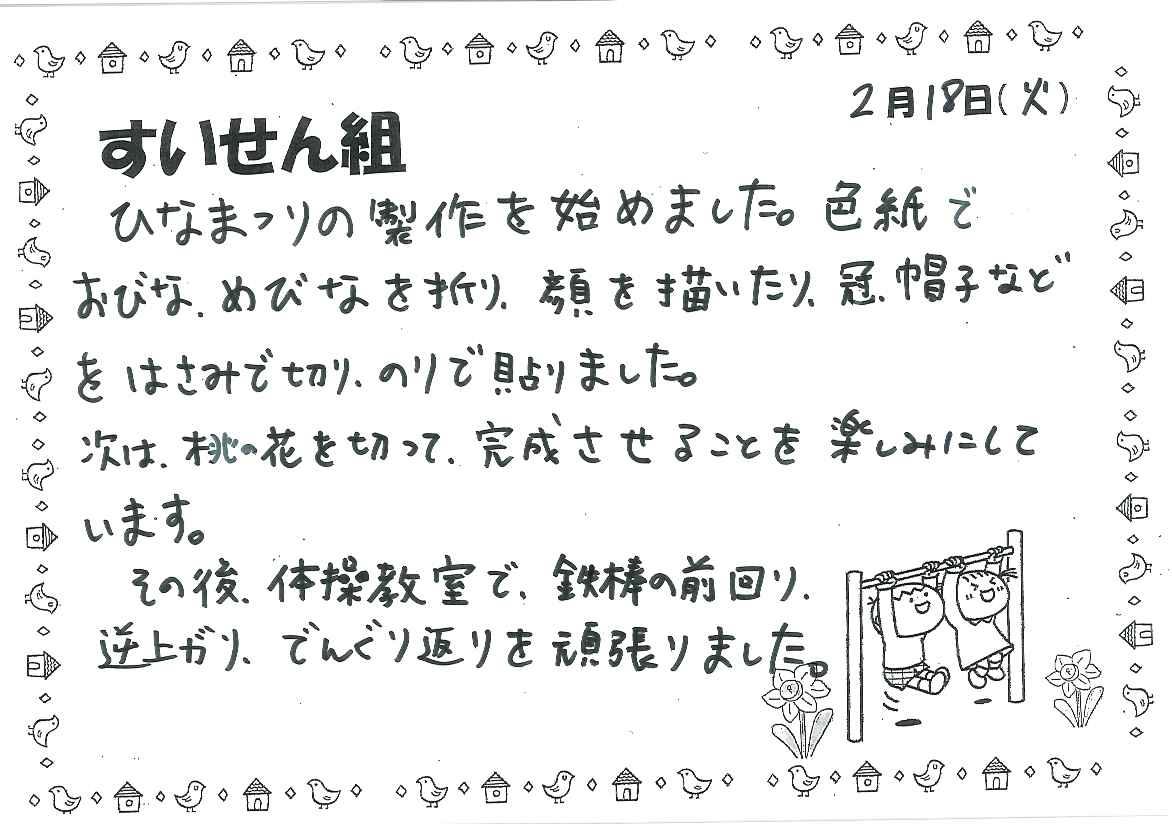 2月18日(火)
すいせん組
ひなまつりの製作を始めました。色紙で
おびな、めびなを折り、顔を描いたり、冠、帽子など
をはさみで切り、のりで貼りました。
次は、桃の花を切って、完成させることを楽しみにして
います。
その後、体操教室で、鉄棒の前回り、
逆上がり、でんぐり返りを頑張りました。